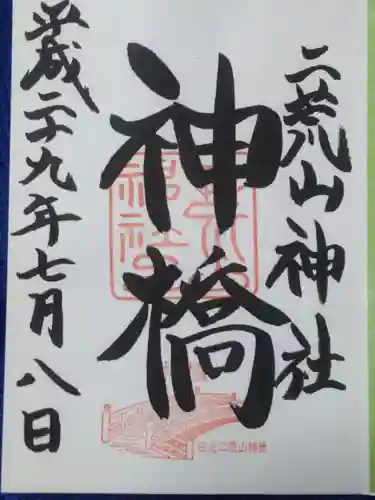 二荒山神社
神橋
平成二十九年七月八日
日光二荒山神社